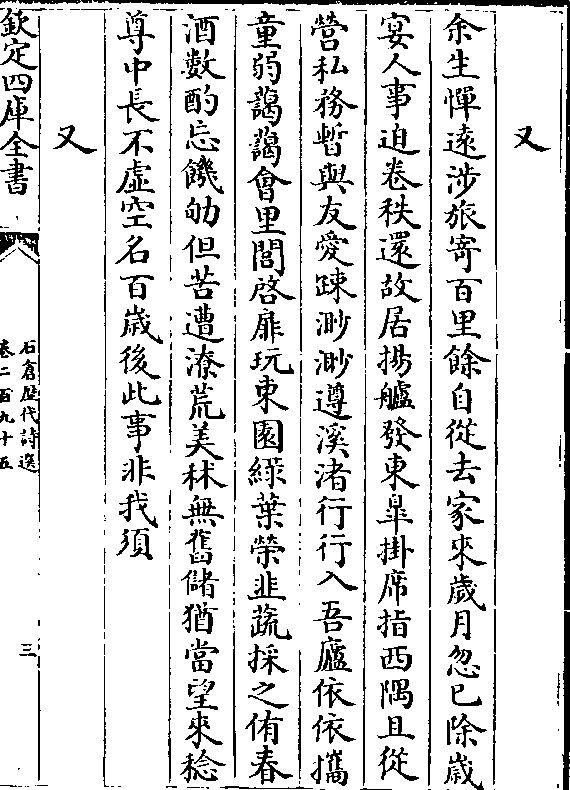 又
余生憚遠涉旅寄百里餘自從去家來歲月忽已除歲
宴人事迫卷秩還故居揚艫發東臯掛席指西隅且從
營私務暫與友愛踈渺渺遵溪渚行行入吾廬依依攜
童弱藹藹會里閭啓扉玩東園緑葉榮韭蔬採之侑春
酒數酌忘饑劬但苦遭潦荒美秫無舊儲猶當望來稔
尊中長不虛空名百歳後此事非我須
又
欽定四庫全書
石倉歴代詩選
卷二百九十五
三